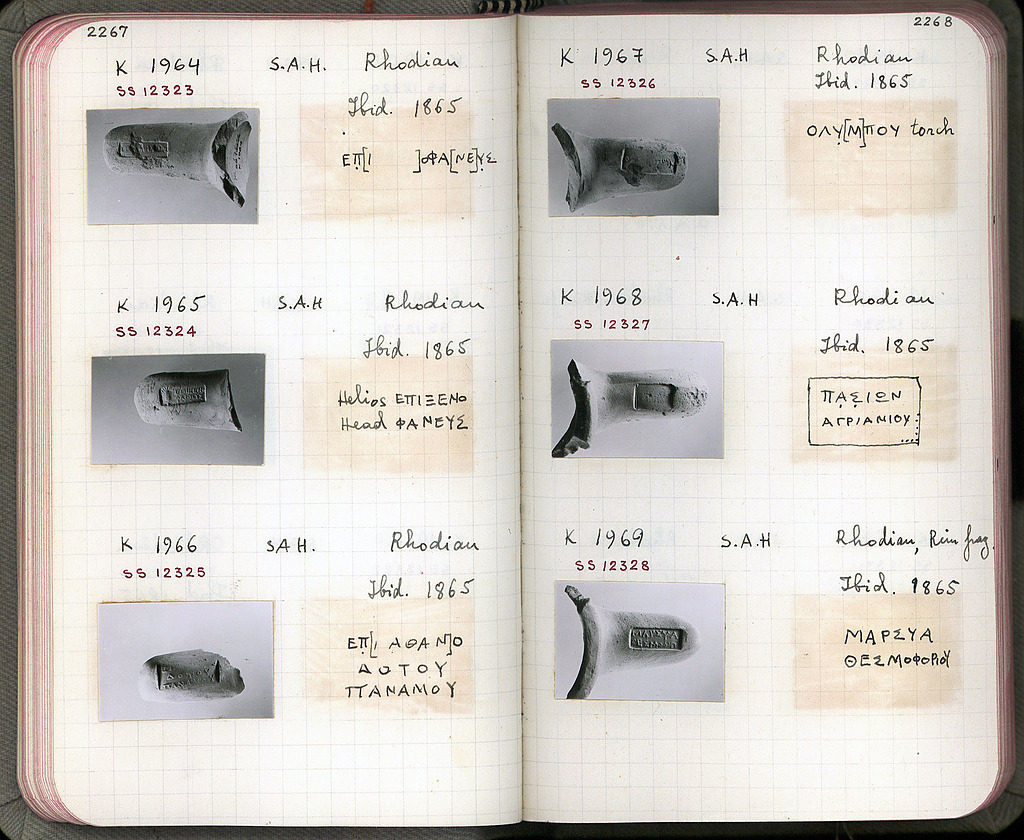 2267
K 1964 S.A.H. Rhodian
SS 12323
Ibid. 1865
ΕΠ[Ι ]ΟΦΑ[ΝΕ]ΥΣ
K 1965 S.A.H Rhodian
SS 12324
Ibid. 1865
Helios ΕΠΙΞΕΝΟ
Head ΦΑΝΕΥΣ
K 1966 SAH. Rhodian
SS 12325
Ibid. 1865
ΕΠ[Ι ΑΘΑΝ]Ο
ΔΟΤΟΥ
ΠΑΝΑΜΟΥ
2268
K 1967 S.A.H Rhodian
SS 12326
Ibid. 1865
ΟΛΥ[Μ]ΠΟΥ torch
K 1968 S.A.H Rhodian
SS 12327
Ibid. 1865
ΠΑΣΙΩΝ
ΑΓΡΙΑΝΙΟΥ
K 1969 S.A.H Rhodian, Rim frag.
SS 12328
Ibid. 1865
ΜΑΡΣΥΑ
ΘΕΣΜΟΦΟΡΙΟΥ